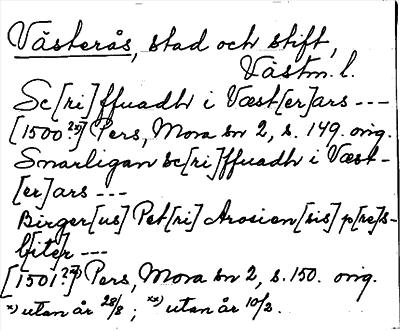 Västerås, stad och stift,
Västm. l.
Sc[ri]ffuadh i Væst[er]ars ---
[1500?*)] Pers, Mora sn 2, s. 149. orig.
Snarligan sc[ri]ffuadh i Væst-
[er]ars ---
Birger[us] Pet[ri] Arosien[sis] p[re]s-
b[ite]r ---
[1501?**)] Pers, Mora sn 2, s. 150. orig.
*) utan år 28/8 ; **) utan år 10/2.